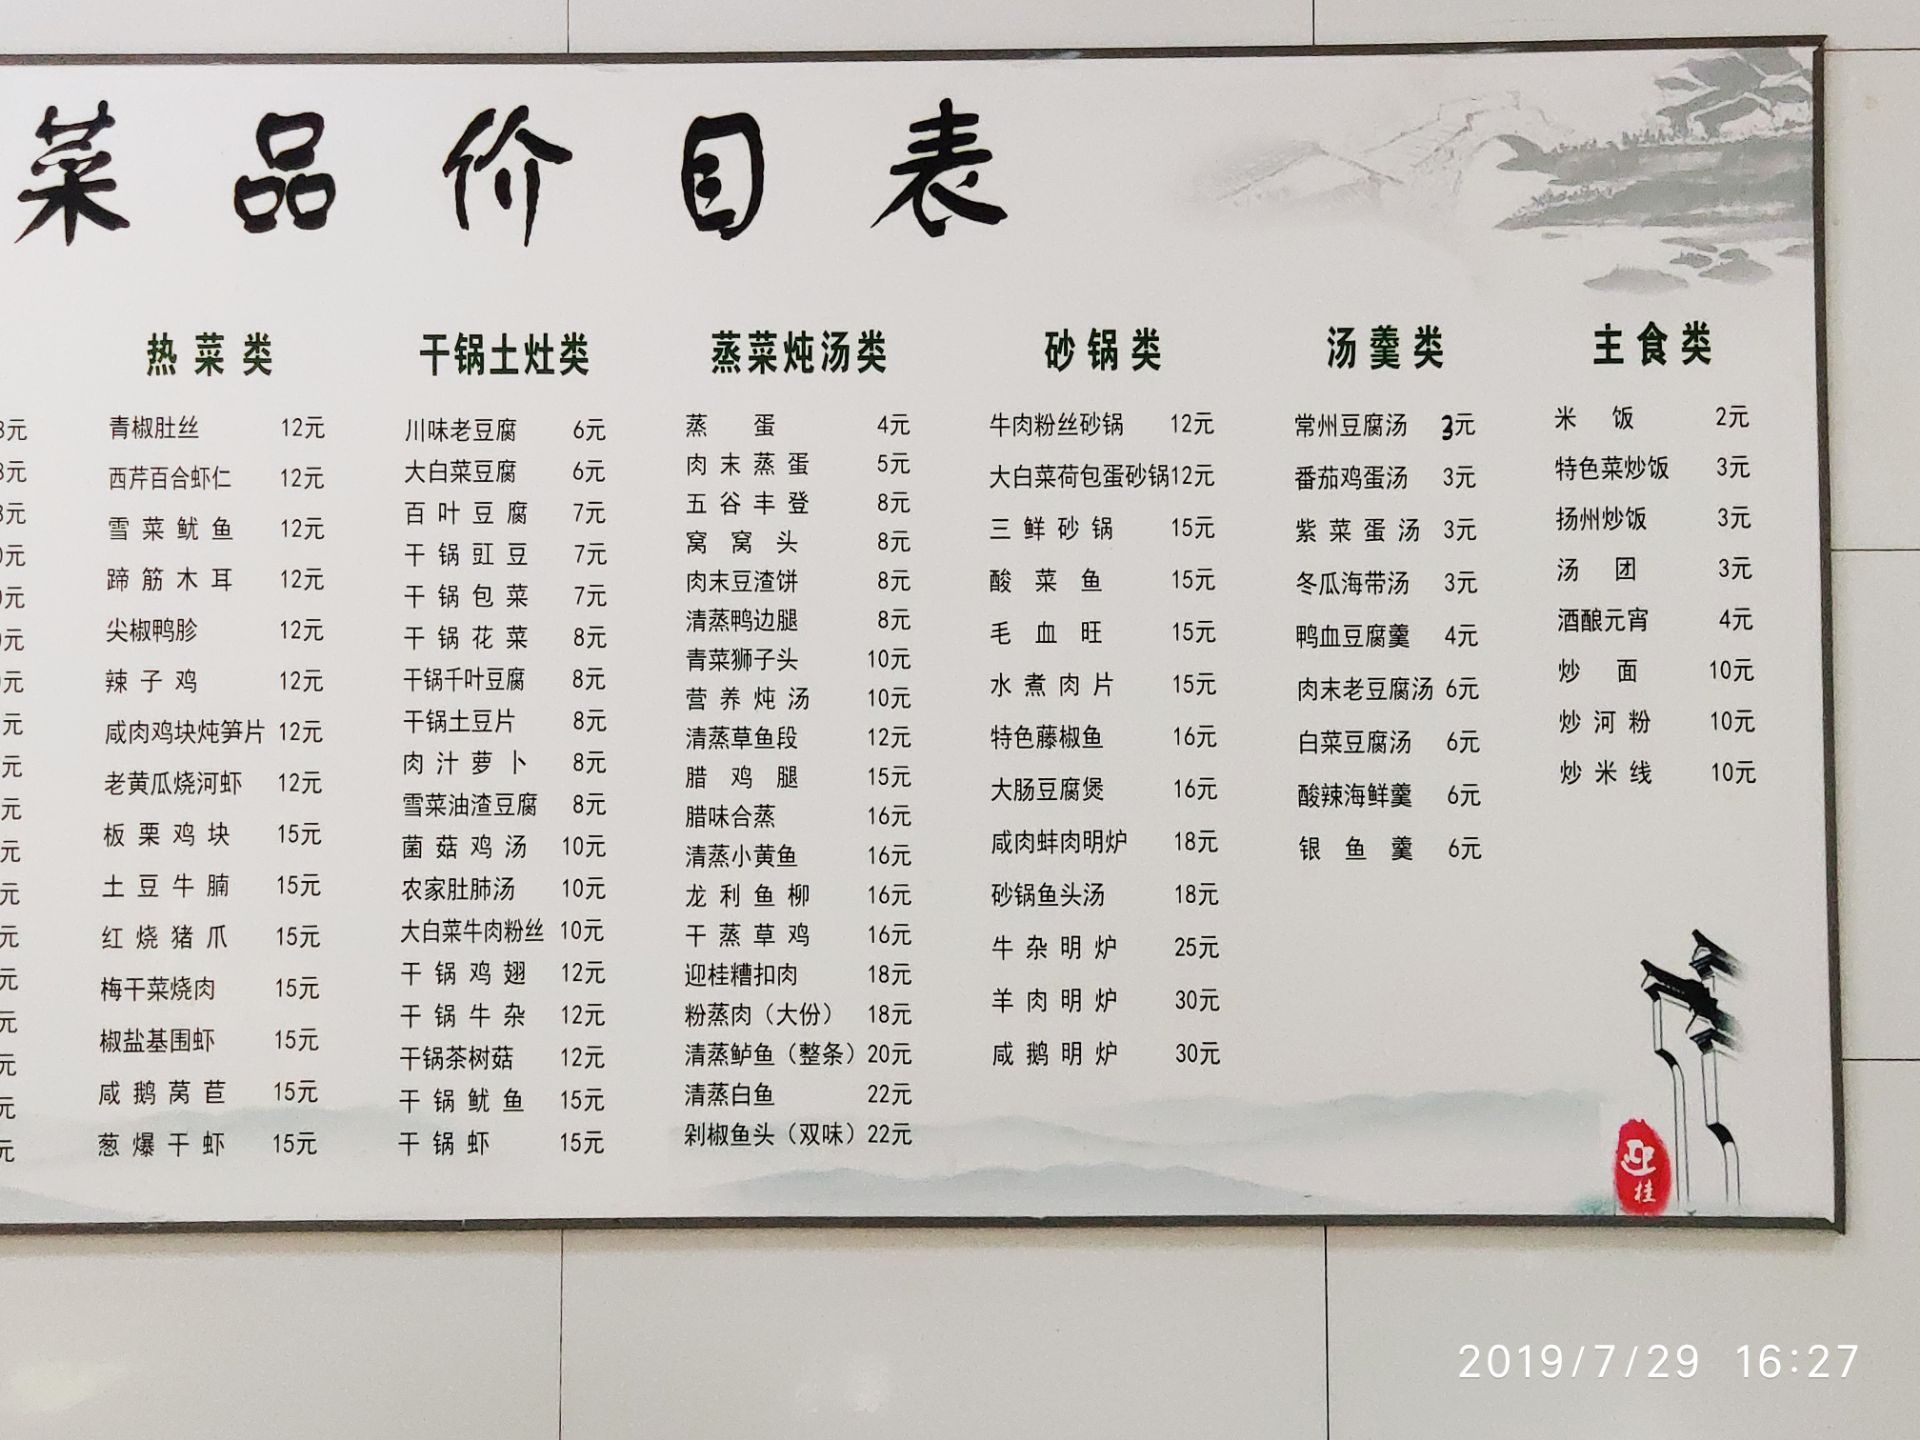 菜品价目表
热菜类
青椒肚丝 12元
西芹百合虾仁 12元
雪菜鱿鱼 12元
蹄筋木耳 12元
尖椒鸭胗 12元
辣子鸡 12元
咸肉鸡块炖笋片 12元
老黄瓜烧河虾 12元
板栗鸡块 15元
土豆牛腩 15元
红烧猪爪 15元
梅干菜烧肉 15元
椒盐基围虾 15元
咸鹅莴苣 15元
葱爆干虾 15元
干锅土灶类
川味老豆腐 6元
大白菜豆腐 6元
百叶豆腐 7元
干锅豇豆 7元
干锅包菜 7元
干锅花菜 8元
干锅千叶豆腐 8元
干锅土豆片 8元
肉汁萝卜 8元
雪菜油渣豆腐 8元
菌菇鸡汤 10元
农家肚肺汤 10元
大白菜牛肉粉丝 10元
干锅鸡翅 12元
干锅牛杂 12元
干锅茶树菇 12元
干锅鱿鱼 15元
干锅虾 15元
蒸菜炖汤类
蒸蛋 4元
肉末蒸蛋 5元
五谷丰登 8元
窝窝头 8元
肉末豆渣饼 8元
清蒸鸭边腿 8元
青菜狮子头 10元
营养炖汤 10元
清蒸草鱼段 12元
腊鸡腿 15元
腊味合蒸 16元
清蒸小黄鱼 16元
龙利鱼柳 16元
干蒸草鸡 16元
迎桂糟扣肉 18元
粉蒸肉（大份） 18元
清蒸鲈鱼（整条）20元
清蒸白鱼 22元
剁椒鱼头（双味）22元
砂锅类
牛肉粉丝砂锅 12元
大白菜荷包蛋砂锅12元
三鲜砂锅 15元
酸菜鱼 15元
毛血旺 15元
水煮肉片 15元
特色藤椒鱼 16元
大肠豆腐煲 16元
咸肉蚌肉明炉 18元
砂锅鱼头汤 18元
牛杂明炉 25元
羊肉明炉 30元
咸鹅明炉 30元
汤羹类
常州豆腐汤 3元
番茄鸡蛋汤 3元
紫菜蛋汤 3元
冬瓜海带汤 3元
鸭血豆腐羹 4元
肉末老豆腐汤 6元
白菜豆腐汤 6元
酸辣海鲜羹 6元
银鱼羹 6元
主食类
米饭 2元
特色菜炒饭 3元
扬州炒饭 3元
汤团 3元
酒酿元宵 4元
炒面 10元
炒河粉 10元
炒米线 10元
迎桂
2019/7/29 16:27